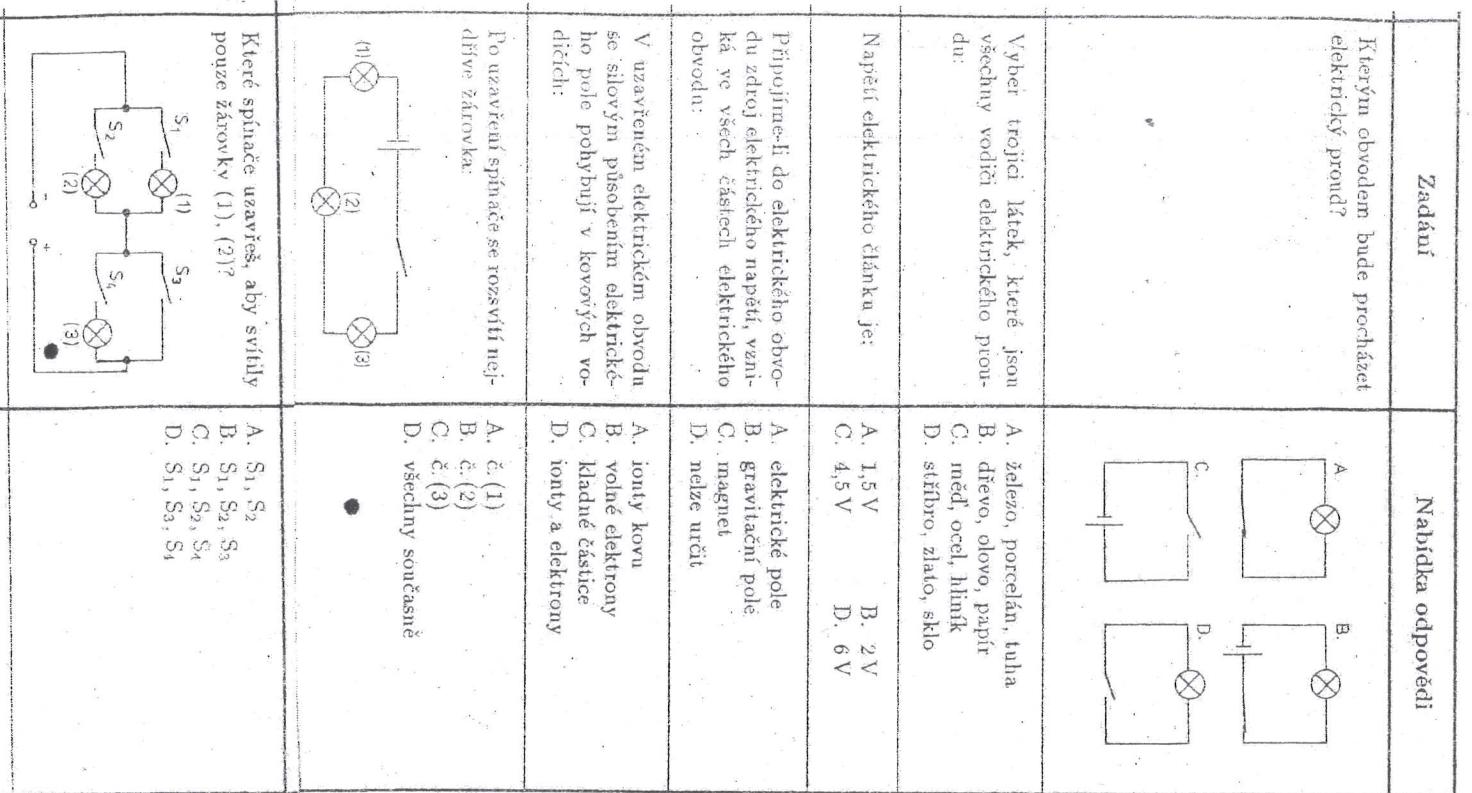 Zadání
Nabídka odpovědi
Kterým obvodem bude procházet
elektrický proud?
A.
B.
C.
D.
Vyber trojici látek, které jsou
všechny vodiči elektrického prou-
du:
A. železo, porcelán, tuha
B. dřevo, olovo, papír
C. měď, ocel, hliník
D. stříbro, zlato, sklo
Napětí elektrického článku je:
A. 1,5 V B. 2 V
C. 4,5 V D. 6 V
Připojíme-li do elektrického obvo-
du zdroj elektrického napětí, vzni-
ká ve všech částech elektrického
obvodu:
A. elektrické pole
B. gravitační pole
C. magnet
D. nelze určit
V uzavřeném elektrickém obvodu
se silovým působením elektrické-
ho pole pohybují v kovových vo-
dičích:
A. ionty kovu
B. volné elektrony
C. kladné částice
D. ionty a elektrony
Po uzavření spínače se rozsvítí nej-
dříve žárovka:
(1)
(2)
(3)
A. č. (1)
B. č. (2)
C. č. (3)
D. všechny současně
Které spínače uzavřeš, aby svítily
pouze žárovky (1), (2)?
S1
(1)
S2
(2)
S3
S4
(3)
- +
A. S1, S2
B. S1, S2, S3
C. S1, S2, S4
D. S1, S3, S4